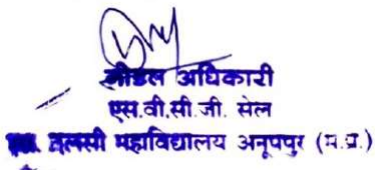 नोडल अधिकारी
एस.वी.सी.जी. सेल
तुलसी महाविद्यालय अनूपपुर (म.प्र.)